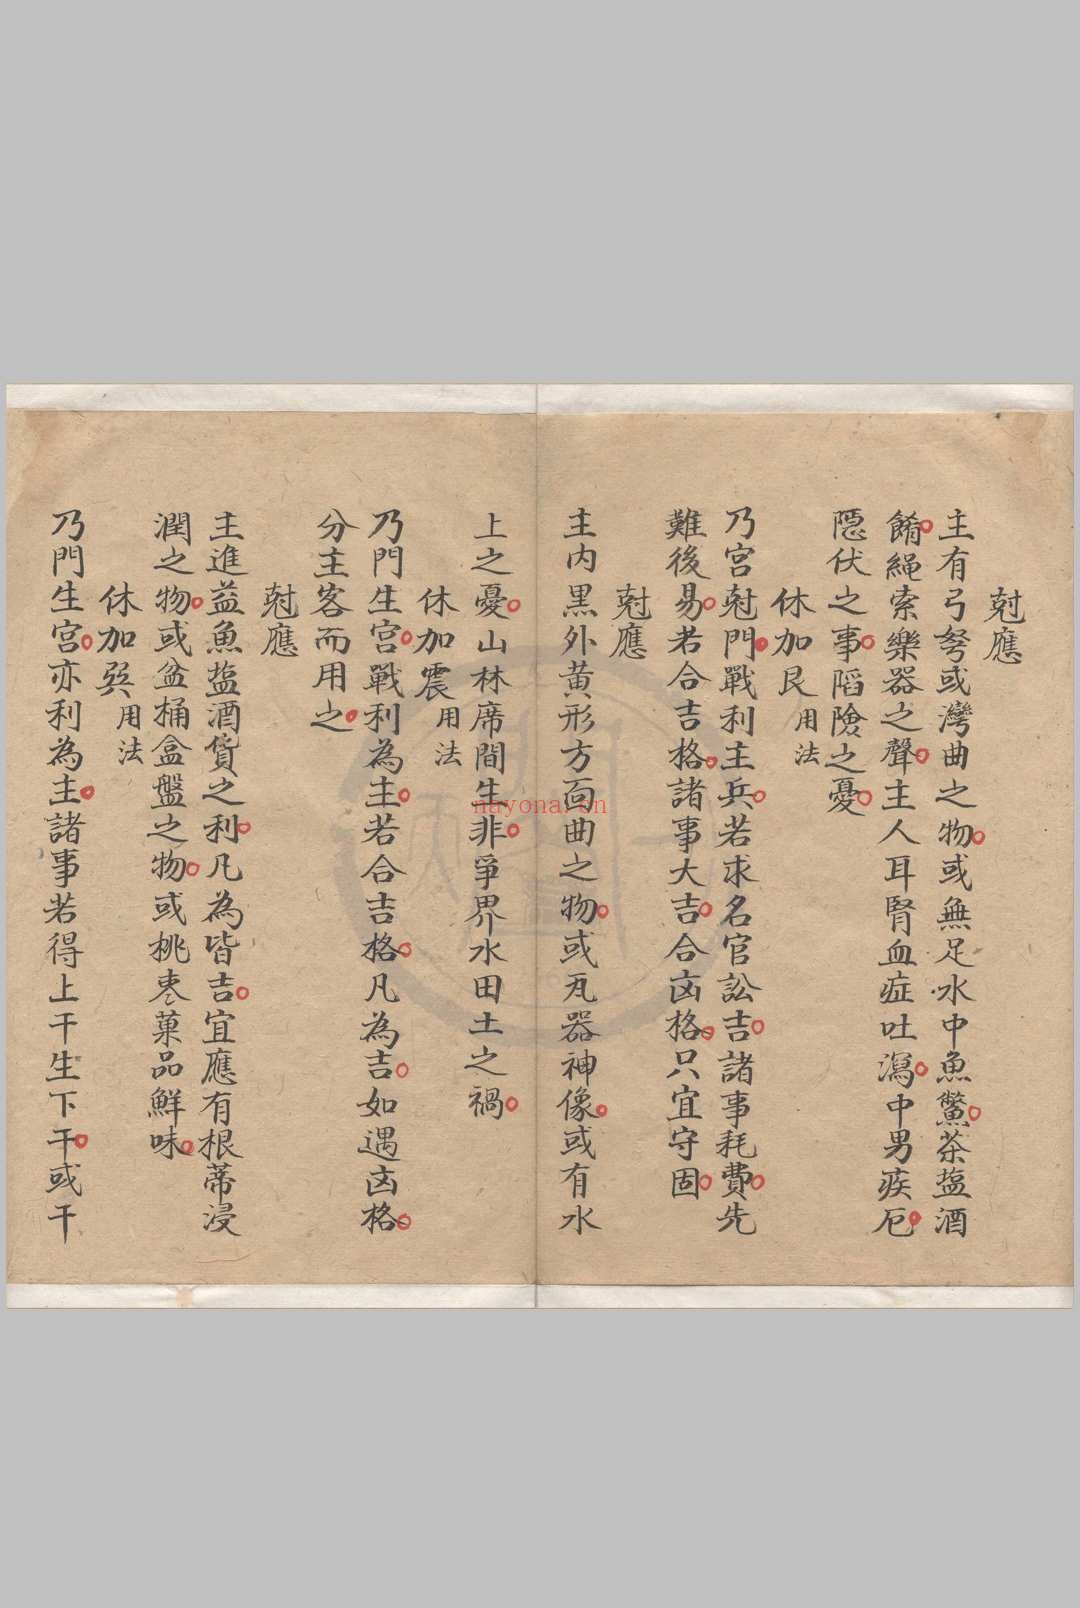 尅應
主有弓弩或灣曲之物或無足水中魚鱉茶塩酒
餚繩索樂器之聲主人耳腎血症吐瀉中男疾厄
隠伏之事陷險之憂
休加艮用法
乃宫尅門戰利主兵若求名官訟吉諸事耗費先
難後易若合吉格諸事大吉合凶格只宜守固
尅應
主内黒外黄形方靣曲之物或瓦器神像或有水
上之憂山林席間生非爭界水田土之禍
休加震用法
乃門生宫戰利為主若合吉格凡為吉如遇凶格
分主客而用之
尅應
主進益魚塩酒貨之利凡為皆吉宜應有根蒂浸
潤之物或盆桶盒盤之物或桃枣菓品鮮味
休加巽用法
乃門生宫亦利為主諸事若得上干生下干或干
nayona.cn